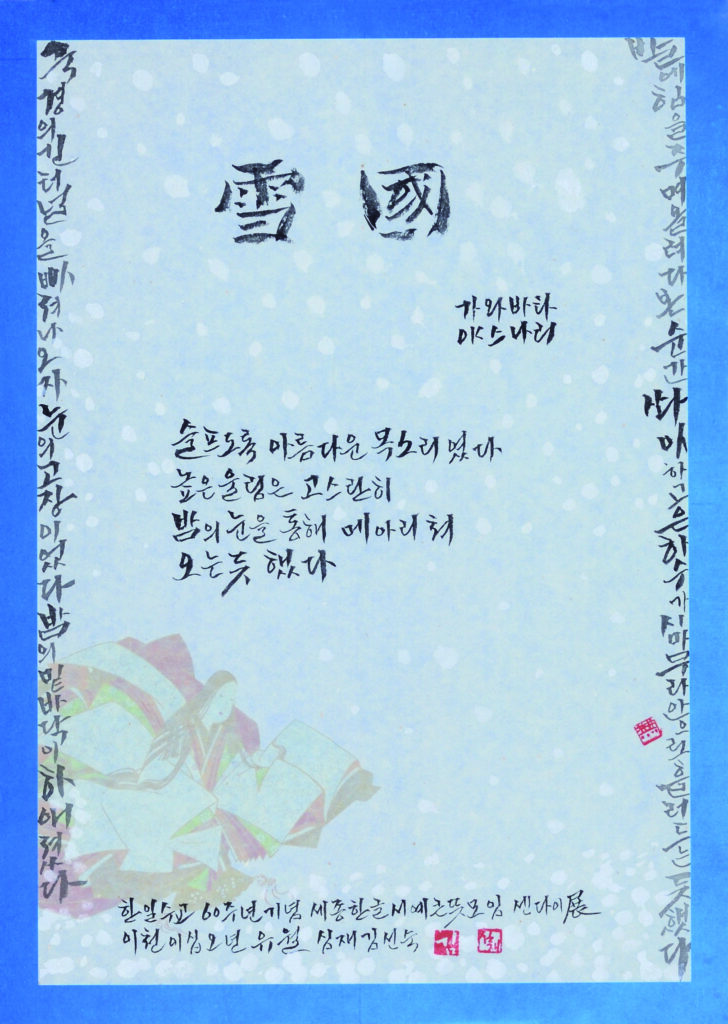 국경의 긴 터널을 빠져나오자 눈의 고장이었다 밤의 밑바닥이 하얘졌다
雪國
가와바타
야스나리
슬프도록 아름다운 목소리였다
높은 울림은 고스란히
밤의 눈을 통해 메아리쳐
오는듯 했다
발에 힘을 주며 올려다본 순간 쏴아 하고 은하수가 시마무라 안으로 흘러드는 듯했다
한일수교 60주년기념 세종한글서예큰뜻모임 센다이展
이천이십오년 유월 심재 김선숙